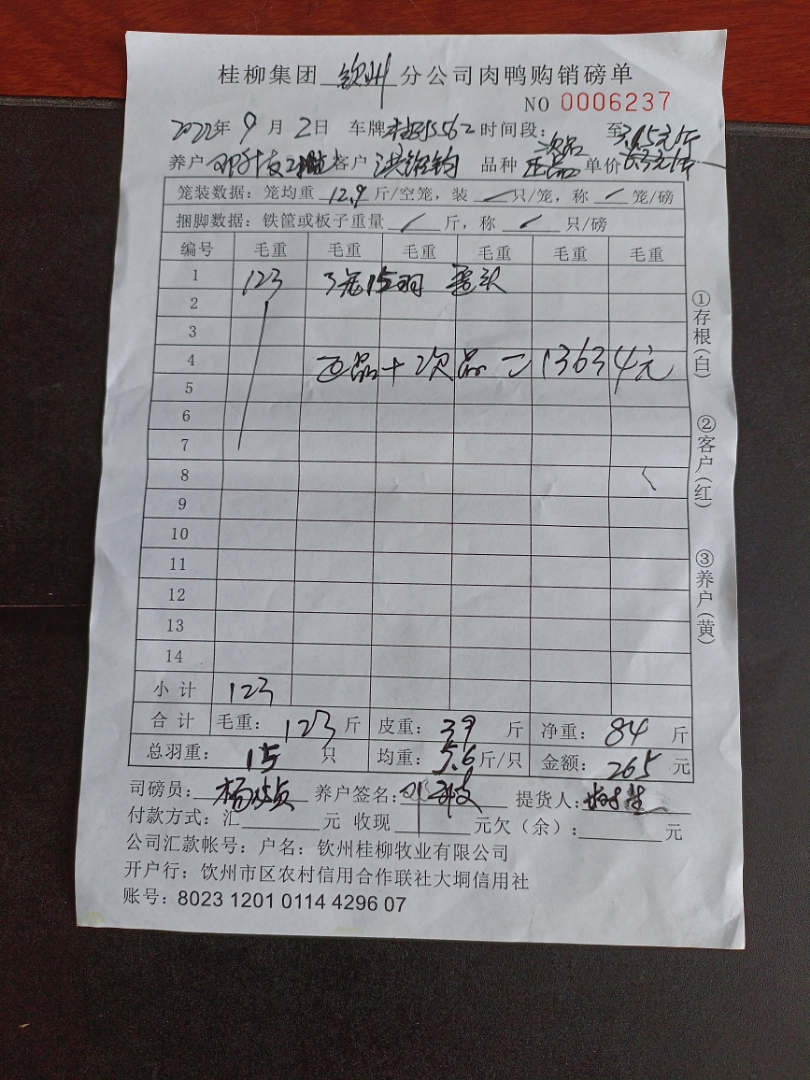 桂柳集团 钦州 分公司肉鸭购销磅单
NO 0006237
2022年 9 月 2 日 车牌 562 时间段： 至 3.15元/斤
养户 客户 洪 钧 品种 次品 正品 单价
笼装数据：笼均重 12.9 斤/空笼，装 只/笼，称 笼/磅
捆脚数据：铁筐或板子重量 斤，称 只/磅
编号 毛重 毛重 毛重 毛重 毛重 毛重
1 123 3笼15羽
2
3
4 正品+次品=13634元
5
6
7
8
9
10
11
12
13
14
小计 123
合计 毛重：123 斤 皮重：39 斤 净重：84 斤
总羽重：15 只 均重：5.6 斤/只 金额：265 元
司磅员：杨 贞 养户签名：邓 提货人：
付款方式：汇 元 收现 元欠（余）： 元
公司汇款帐号：户名：钦州桂柳牧业有限公司
开户行：钦州市区农村信用合作联社大垌信用社
账号：8023 1201 0114 4296 07
①存根(白)
②客户(红)
③养户(黄)